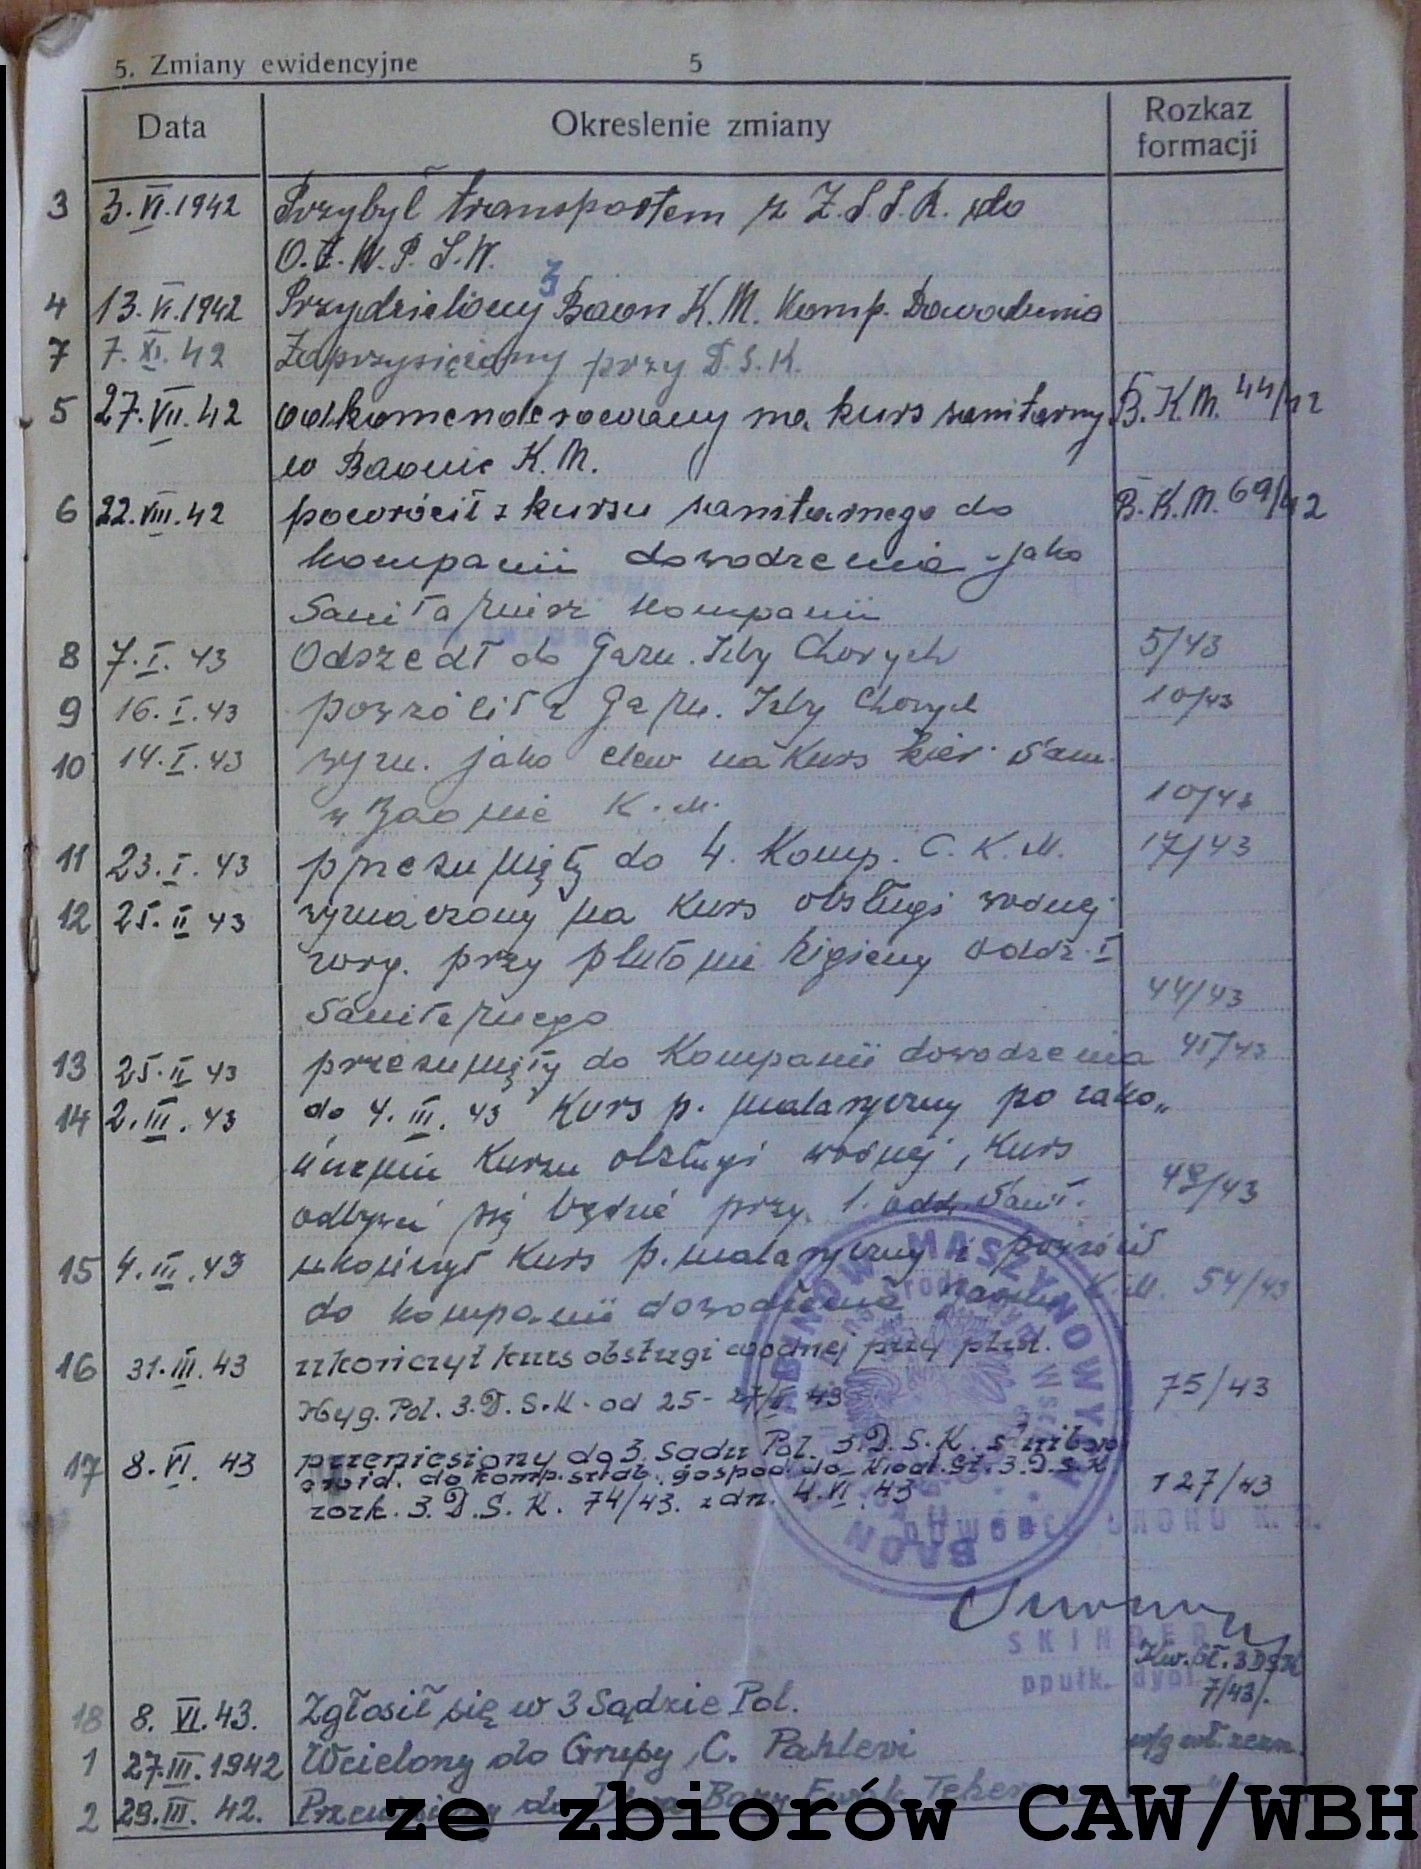 5. Zmiany ewidencyjne 5
Data Okreslenie zmiany Rozkaz formacji
3 3.VI.1942 Przybył transportem z Z.S.S.R. do
O.Z.W.P.S.W.
3
4 13.VI.1942 Przydzielony Baon K.M. Komp. Dowodzenia
7 7.XI.42 Zaprzysiężony przy D.S.K.
5 27.VII.42 odkomenderowany na kurs sanitarny B.K.M. 44/42
w Baonie K.M.
6 22.VIII.42 powrócił z kursu sanitarnego do B.K.M. 69/42
kompanii dowodzenia - jako
Sanitariusz kompanii
8 7.I.43 Odszedł do Garn. Izby Chorych 5/43
9 16.I.43 powrócił z Garn. Izby Chorych 10/43
10 14.I.43 wyzn. jako elew na kurs San.
w Baonie K.M. 10/43
11 23.I.43 przesunięty do 4. Komp. C.K.M. 17/43
12 25.II 43 wyznaczony na kurs obsługi wodnej
zorg. przy plutonie higieny Oddz. I
Sanitarnego 44/43
13 25.II 43 przesunięty do Kompanii dowodzenia 45/43
14 2.III.43 do 4.III.43 Kurs p. malaryczny po zako„
ńczeniu Kursu obsługi wodnej, Kurs
odbywać się będzie przy 1. oddz. Sanit. 49/43
15 4.III.43 ukończył Kurs p. malaryczny i powrócił
do kompanii dowodzenia Baonu K.M. 54/43
16 31.III.43 ukończył kurs obsługi wodnej przy plut.
Hyg. Pol. 3.D.S.K. od 25-27/II 43 75/43
17 8.VI.43 przeniesiony do 3 Sądu Pol. 3.D.S.K.
ewid. do komp. sztab. gospod. do Kwat. Gł. 3.D.S.K
rozk. 3.D.S.K. 74/43. z dn. 4.VI.43 127/43
BAON MASZYNOWY
DOWÓDCA BAONU K.M.
SKINDER
ppułk. dypl.
Kw. Gł. 3 DSK
7/43/.
18 8.VI.43. Zgłosił się w 3 Sądzie Pol.
1 27.III.1942 Wcielony do Grupy C. Pahlevi w/g wł. zezn.
2 29.III.42. do Bazy Teheran -"-
ze zbiorów CAW/WBH